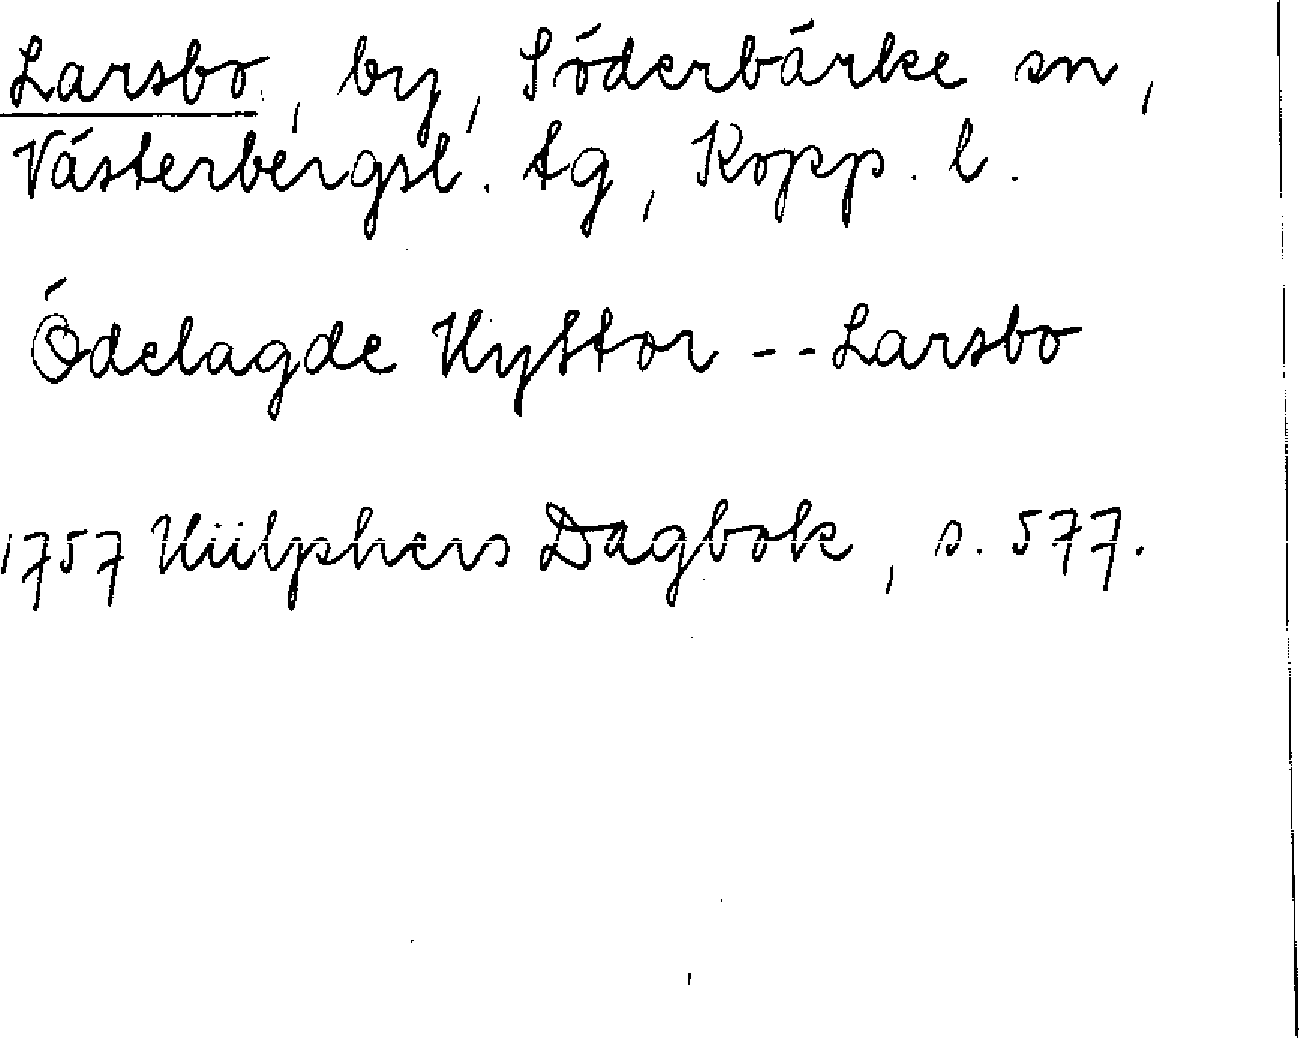 Larsbo, by, Söderbärke sn,
Västerbergsl. tg, Kopp. l.
Ödelagde Hyttor -- Larsbo
1757 Hülphers Dagbok, s. 577.